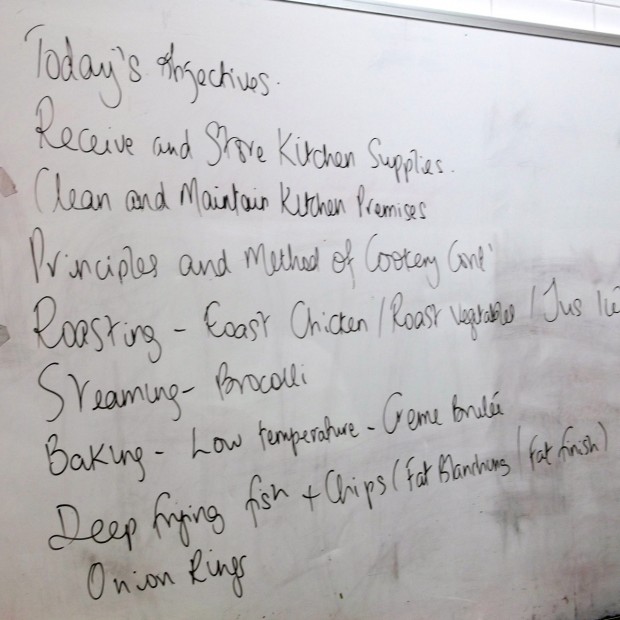 Today's Objectives.
Receive and Store Kitchen Supplies.
Clean and Maintain Kitchen Premises
Principles and Method of Cookery Cont'
Roasting - Roast Chicken / Roast Vegetables / Jus
Steaming - Brocolli
Baking - Low temperature - Creme Brulée
Deep frying fish + Chips (Fat Blanching / Fat finish)
Onion Rings